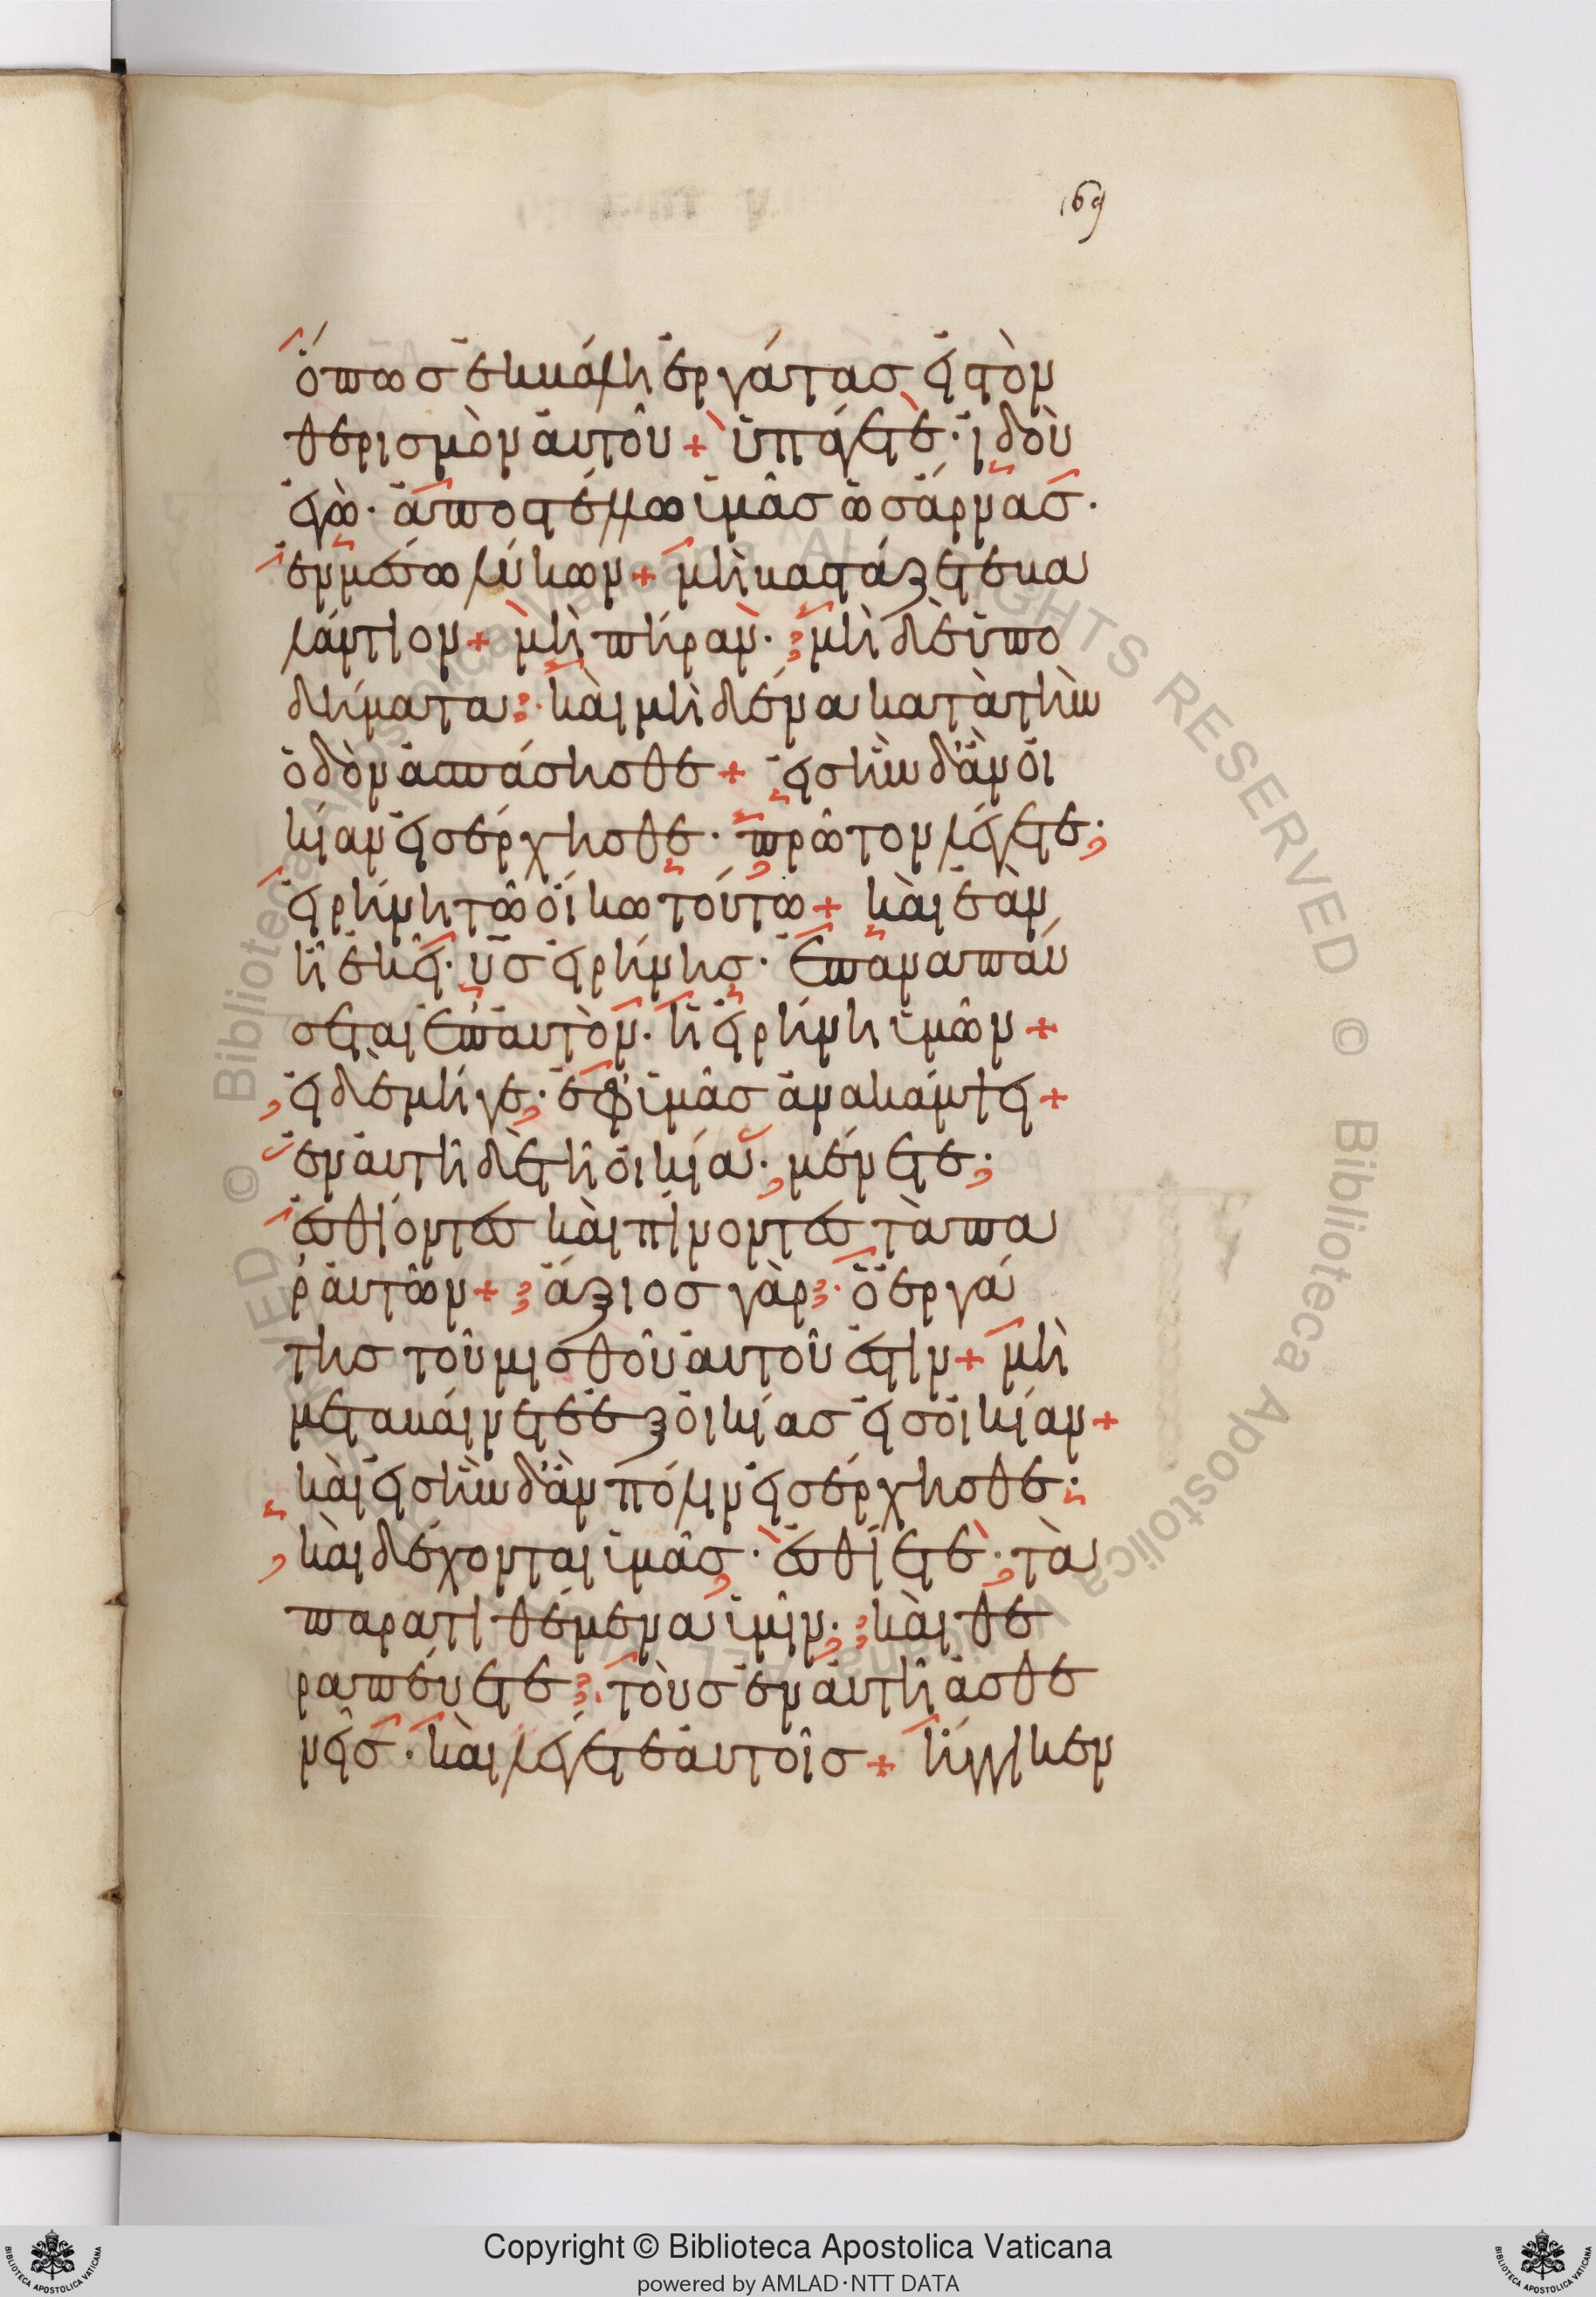 169
ὅπωσ ἐκκάλη ἐργάτασ εἰ τὸν
θερισμὸν ἀυτοῦ + ὑπάγετε· ἰδοὺ
ἐγὼ· ἀποστέλλω ὑμᾶσ ὡσ ἄρνασ·
ἐν μέσω λύκων + μὴ καστάζετε κα
λάντιον + μὴ πήραν· μὴ δὲ ὑπο
δήματα· κὰι μὴ δένα κατὰ τὴν
ὁδὸν ἀσπάσησθε + εἰσ ἣν δ' ἂν ὀι
κίαν εἰσέρχησθε· πρῶτον λέγετε·
εἰρήνη τῶ ὄικω τούτω + κὰι ἐὰν
ἦ ἐκεῖ· ὑσ εἰρήνησ· ἐπαναπαύ
σεται ἐπ' ἀυτὸν· ἡ εἰρήνη ὑμῶν +
εἰ δὲ μήγε· ἐφ' ὑμᾶσ ἀνακάμψει +
ἐν ἀυτῆ δὲ τῆ ὀικία· μένετε·
ἐσθίοντεσ κὰι πίνοντεσ τὰ πα
ρ' ἀυτῶν + ἄξιοσ γὰρ· ὁ ἐργά
τησ τοῦ μισθοῦ ἀυτοῦ ἐστιν + μὴ
μετακάινετε ἐξ ὀικίασ εἰσ ὀικίαν +
κὰι εἰσ ἣν δ' ἂν πόλιν εἰσέρχησθε·
κὰι δέχονται ὑμᾶσ· ἐσθίετε· τὰ
παρατιθέμενα ὑμῖν· κὰι θε
ραπέυετε· τοὺσ ἐν ἀυτῆ ἀσθε
νεῖσ· κὰι λέγετε ἀυτοῖσ + ἤγγικεν
Copyright © Biblioteca Apostolica Vaticana
powered by AMLAD·NTT DATA